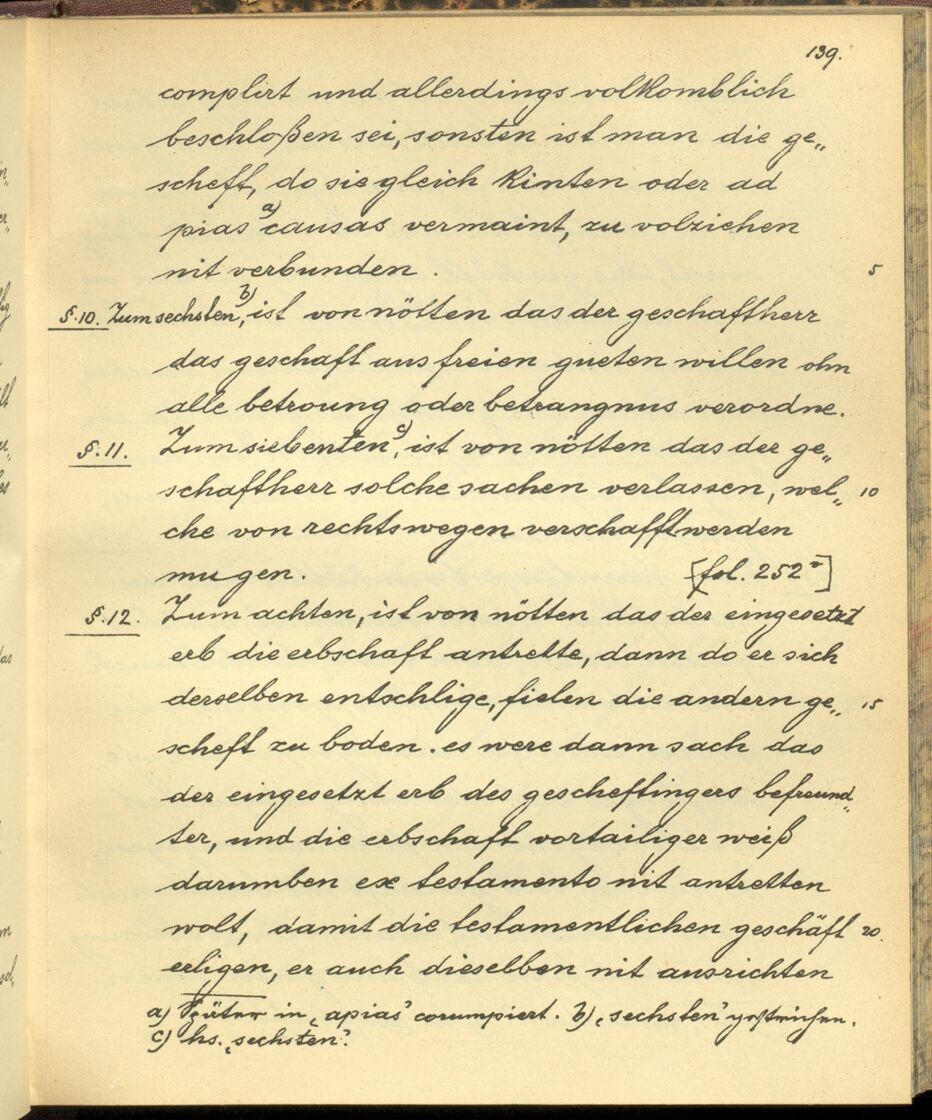 139.
complirt und allerdings volkomblich
beschloßen sei, sonsten ist man die ge„
scheft, do sie gleich kinten oder ad
pias a) causas vermaint, zu volziehen
nit verbunden. 5
§.10. Zum sechsten b), ist von nötten das der geschaftherr
das geschaft aus freien gueten willen ohn
alle betroung oder betrangnus verordne.
§.11. Zum siebenten c), ist von nötten das der ge„
schaftherr solche sachen verlassen, wel„ 10
che von rechtswegen verschafft werden
mugen. [fol. 252v]
§.12. Zum achten, ist von nötten das der eingesetzt
erb die erbschaft antrette, dann do er sich
derselben entschlige, fielen die andern ge„ 15
scheft zu boden. es were dann sach das
der eingesetzt erb des gescheftingers befreund„
ter, und die erbschaft vortailiger weiß
darumben ex testamento nit antretten
wolt, damit die testamentlichen geschäft 20.
erligen, er auch dieselben nit ausrichten
a) Später in ‚apias' corumpiert. b) ‚sechsten' gestrichen.
c) hs. ‚sechsten'.